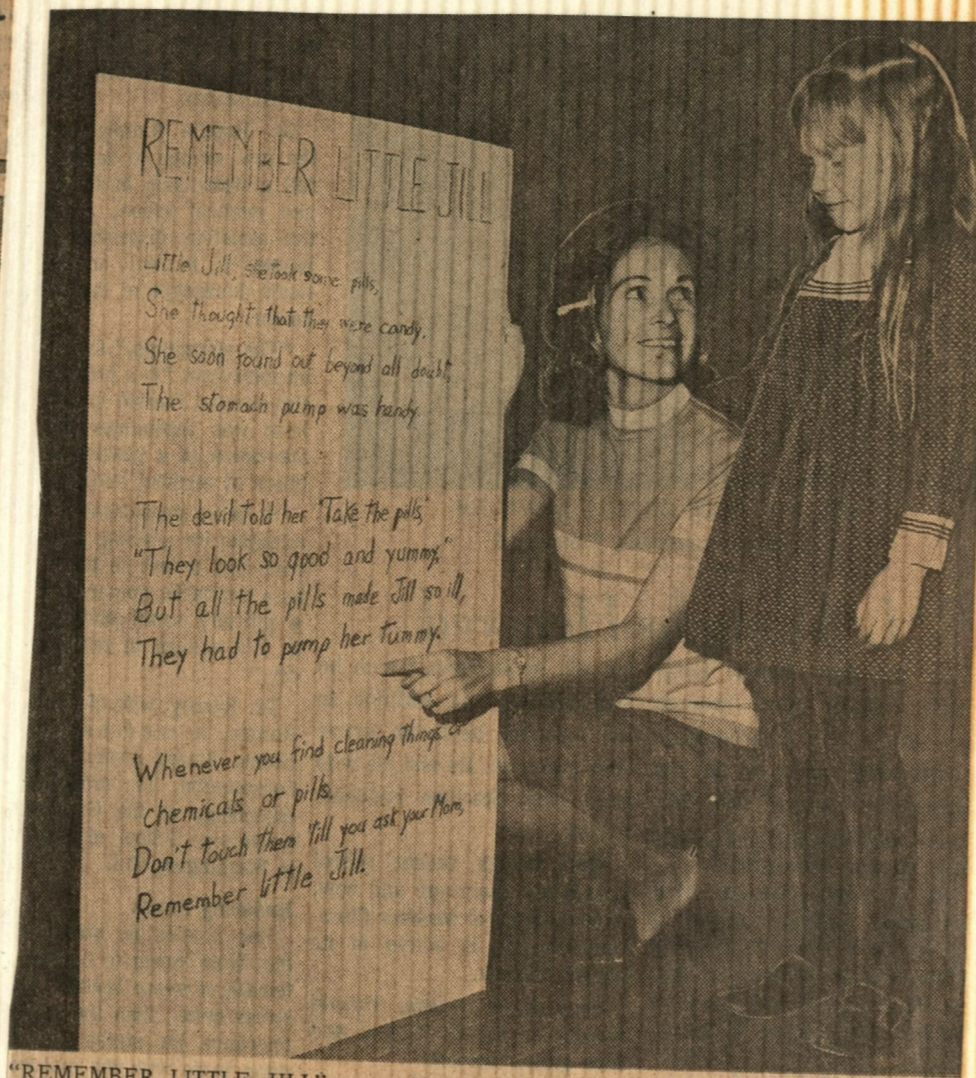 REMEMBER LITTLE JILL
Little Jill, she took some pills,
She thought that they were candy.
She soon found out beyond all doubt,
The stomach pump was handy.
The devil told her "Take the pills"
"They look so good and yummy."
But all the pills made Jill so ill,
They had to pump her tummy.
Whenever you find cleaning things or
chemicals or pills.
Don't touch them 'till you ask your Mom,
Remember little Jill.
"REMEMBER LITTLE JILL"